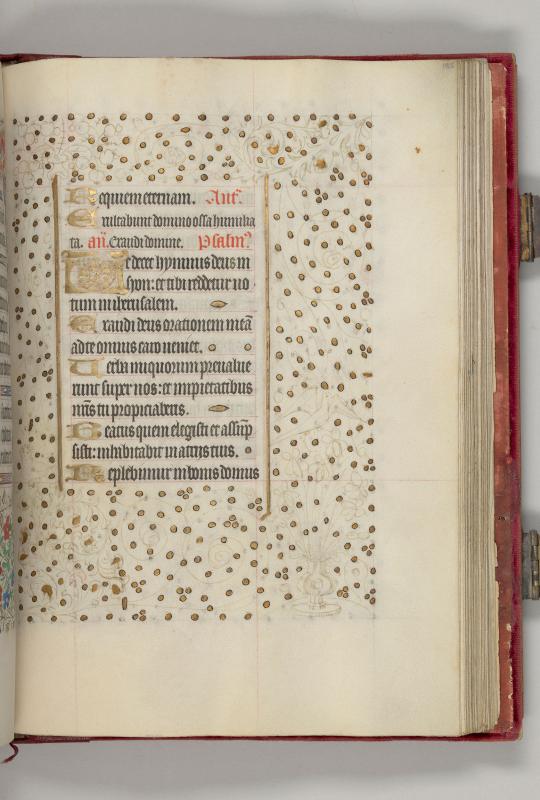 Requiem eternam. Ant.
Exultabunt domino ossa humilia
ta. an. Exaudi domine. Psalm.
Te decet hymnus deus in
syon: et tibi reddetur uo
tum in iherusalem.
Exaudi deus orationem meã
ad te omnis caro ueniet.
Uerba iniquorum preualue
runt super nos: et impietatibus
nrĩs tu propiciaberis.
Beatus quem elegisti et assũp
sisti: inhabitabit in atrijs tuis.
Replebimur in bonis domus